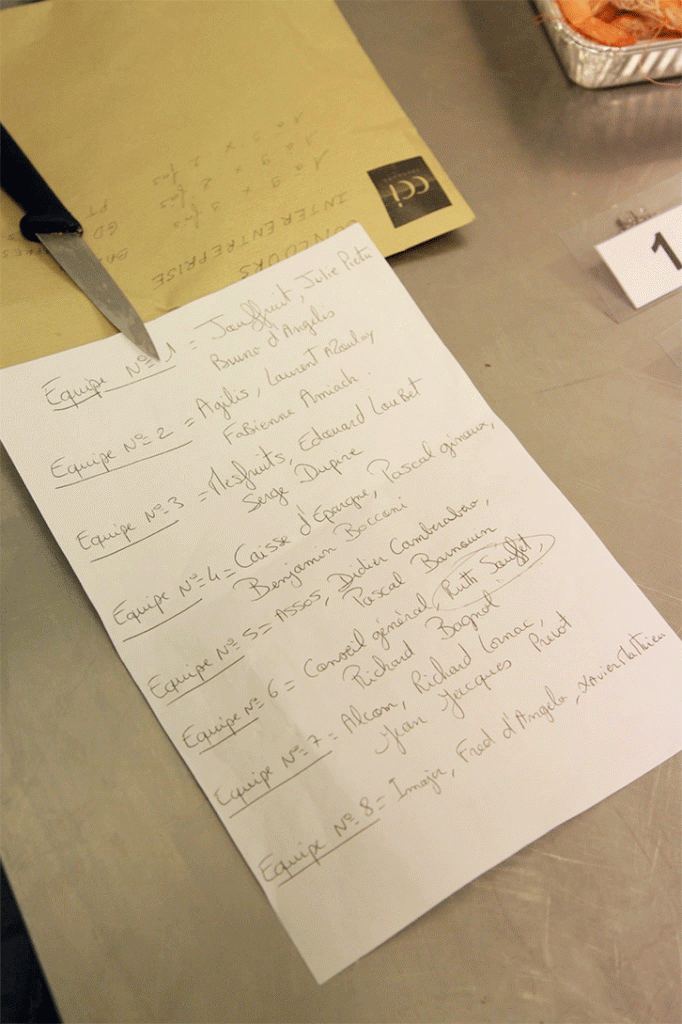 cci
CONCOURS
INTERENTREPRISE
1 à 9 x 3 fois
1 à 9 x 2 fois
1
Equipe N° 1 = Jouffruit, Julie Pietri
Bruno d'Angelis
Equipe N° 2 = Agilis, Laurent Azoulay
Fabienne Amiach.
Equipe N° 3 = Mesfruits, Edouard Loubet
Serge Dupire
Equipe N° 4 = Caisse d'Epargne, Pascal ginoux,
Benjamin Bocconi
Equipe N° 5 = Assos, Didier Camberabero,
Pascal Barnouin
Equipe N° 6 = Conseil général, Ruth Sauffet,
Richard Bagnol
Equipe N° 7 = Alcom, Richard Lornac,
Jean Jacques Prévot
Equipe N° 8 = Imajer, Fred d'Angelo, Xavier Mathieu